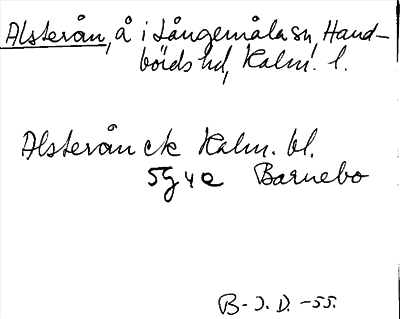 Alsterån, å i Långemåla sn, Hand-
börds hd, Kalm. l.
Alsterån ek Kalm. bl.
5g 4e Barnebo
B-J. D. -55.